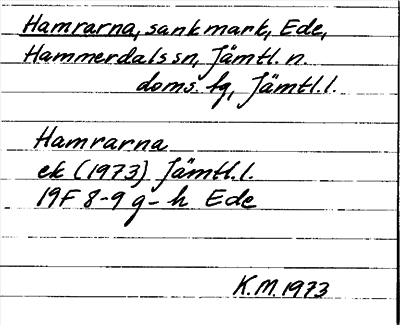 Hamrarna, sankmark, Ede,
Hammerdals sn, Jämtl. n.
doms. fg, Jämtl. l.
Hamrarna
ek (1973) Jämtl. l.
19F 8-9 g-h Ede
K.M. 1973